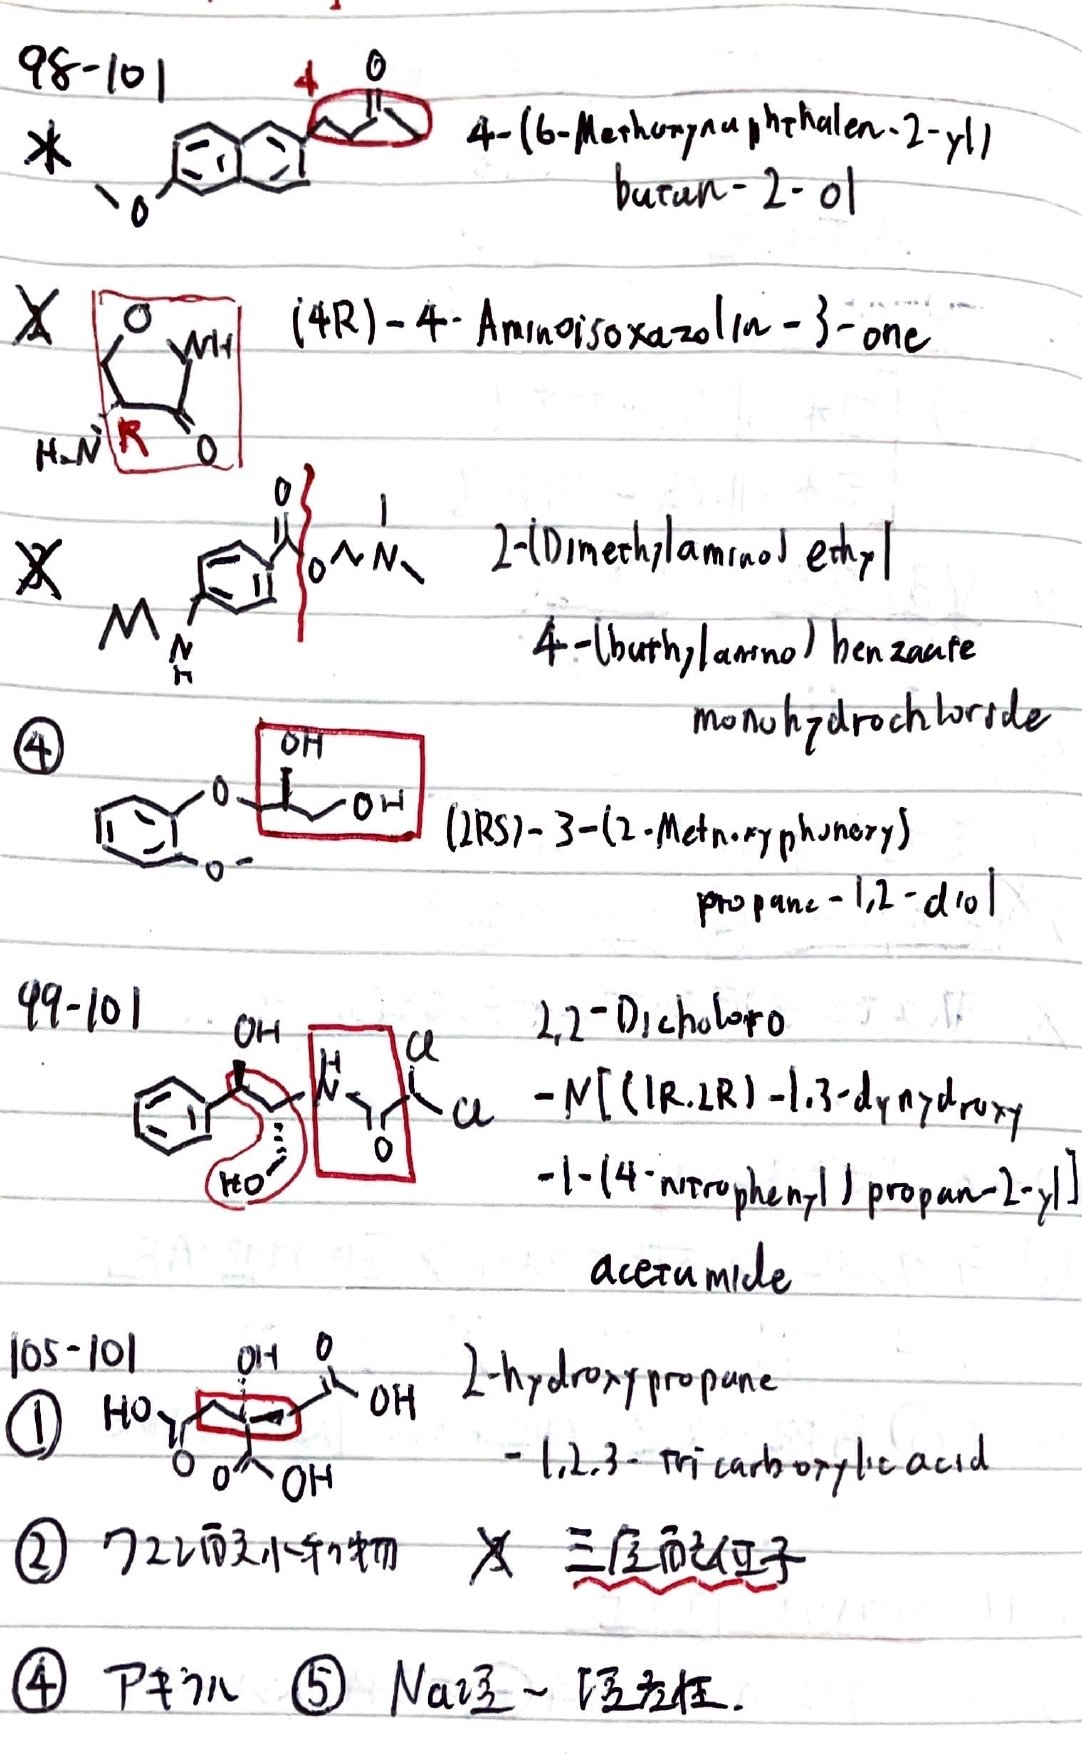 98-101
4 O
4-(6-Methoxynaphthalen-2-yl)
O
butan-2-ol
O NH
(4R)-4-Aminoisoxazolin-3-one
H₂N R O
O
O N
2-(Dimethylamino) ethyl
N
H
4-(buthylamino) benzoate
monohydrochloride
④
OH
O OH
(2RS)-3-(2-Methoxyphenoxy)
O
propane-1,2-diol
99-101
OH H Cl
2,2-Dicholoro
N Cl
-N[(1R.2R)-1.3-dyhydroxy
HO O
-1-(4-nitrophenyl) propan-2-yl]
acetamide
105-101
OH O
2-hydroxypropane
① HO OH
O O OH
-1,2,3-tricarboxylic acid
② クエン酸水和物 三座配位子
④ アキラル ⑤ Na塩~塩基性.